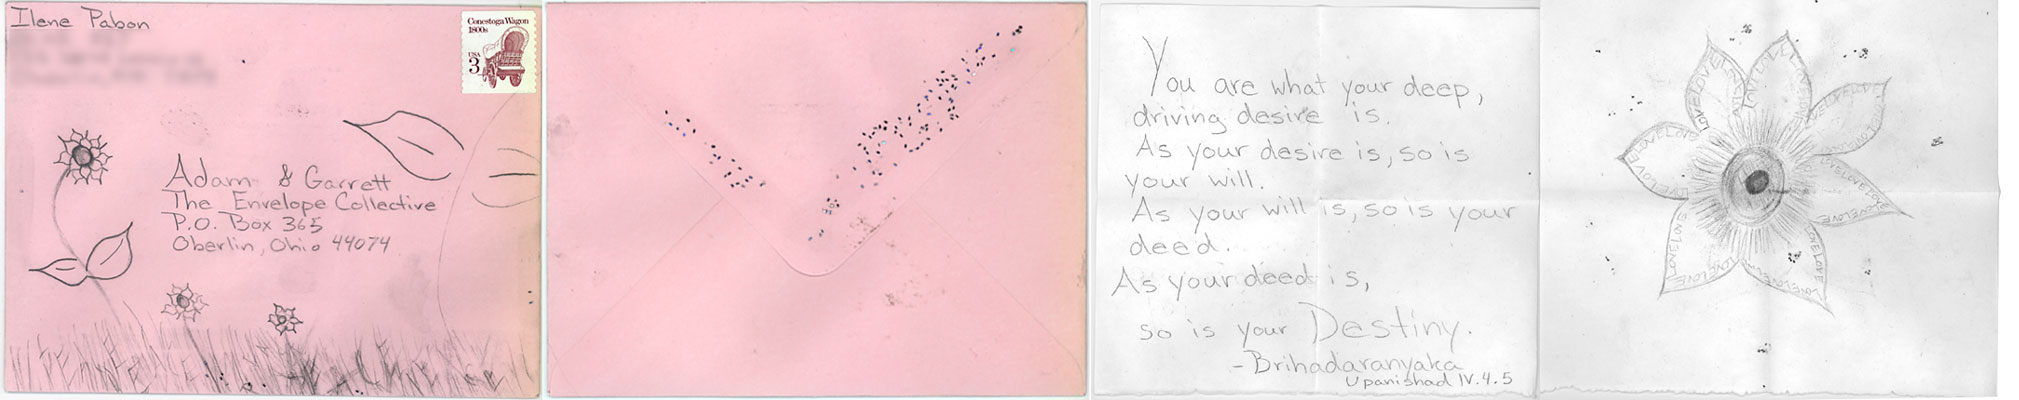 Ilene Pabon
Conestoga Wagon
1800s
USA
3
Adam & Garrett
The Envelope Collective
P.O. Box 365
Oberlin, Ohio 44074
You are what your deep,
driving desire is.
As your desire is, so is
your will.
As your will is, so is your
deed.
As your deed is,
so is your Destiny.
- Brihadaranyaka
Upanishad IV.4.5
LOVELOVE
LOVELOVE
LOVELOVE
LOVELOVE
LOVELOVE